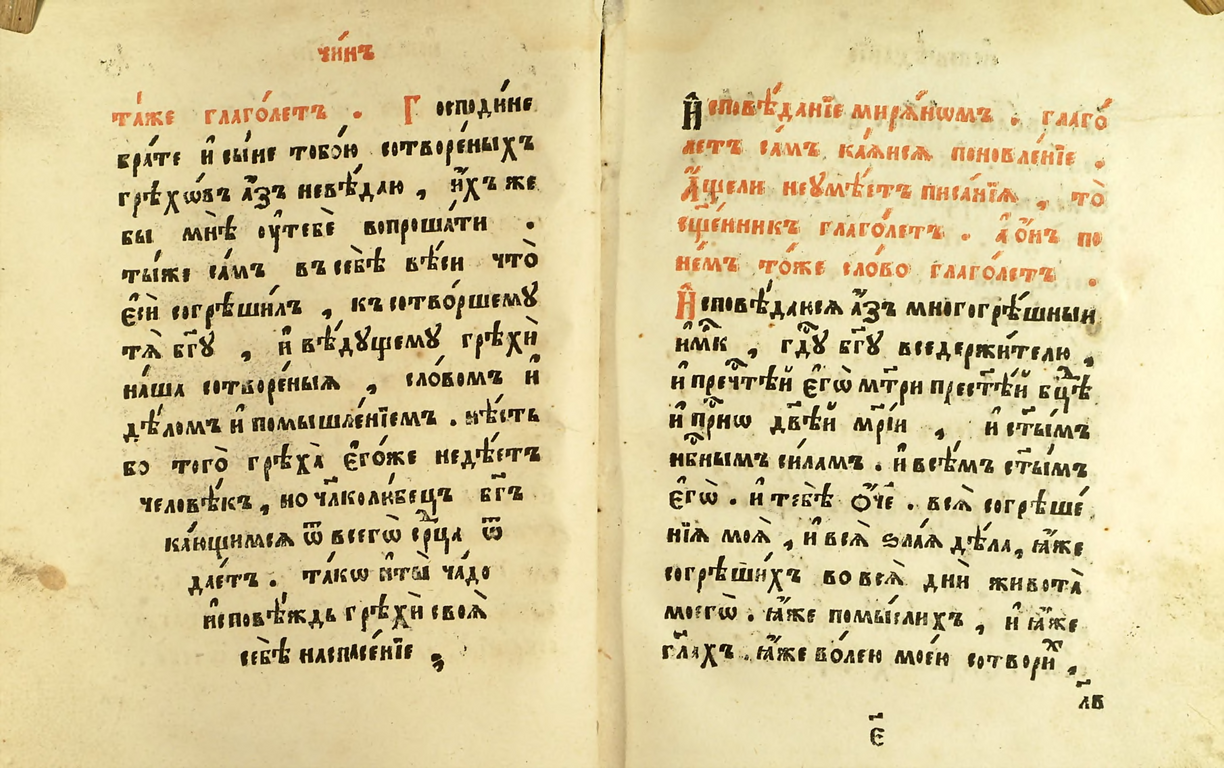 чи́нъ
та́же глаго́летъ . Господи́не
бра́те и҆ сы́не тобо́ю сотворе́ныхъ
грѣхѡ́въ а҆́зъ невѣ́даю , и҆́хъ же
бы мнѣ̀ ᲂу҆тебѐ вопроша́ти .
ты́же са́мъ въ себѣ̀ вѣ́си что̀
є҆сѝ согрѣши́лъ , къ сотво́ршему
тѧ̀ бг҃у , и҆ вѣ́дущему грѣхѝ
на́ша сотворе́ныѧ , сло́вомъ и҆
дѣ́ломъ и҆ помышле́нїемъ . нѣ́сть
бо того̀ грѣха̀ є҆го́же недѣ́етъ
человѣ́къ , но чл҃колю́бецъ бг҃ъ
ка́ющимсѧ ѿ всегѡ̀ ср҃ца ѿ
дае́тъ . та́кѡ и҆ты̀ ча́до
и҆сповѣ́ждь грѣхѝ своѧ̀
себѣ̀ наспасе́нїе ,
И҆сповѣ́данїе мирѧ́нѡмъ . глаго́
летъ са́мъ ка́ѧисѧ поновле́нїе .
А҆́щели неумѣ́етъ писа́нїѧ , то̀
сщ҃е́нникъ глаго́летъ . а҆ ѻ҆́нъ по
не́мъ то́же сло́во глаго́летъ .
И҆сповѣ́даюсѧ а҆́зъ многогрѣ́шныи
и҆мк҃ , гд҇у бг҃у вседержи́телю ,
и҆ пречⷭ҇тѣй є҆гѡ̀ мт҃ри прест҃ѣ́й бц҃ѣ
и҆ прⷭ҇нѡ дв҃ѣй мр҃і́и , и҆ ст҃ы́мъ
нб҇нымъ си́ламъ . и҆ всѣ́мъ ст҃ы́мъ
є҆гѡ̀ . и҆ тебѣ̀ ѻ҆́ч҃е . всѧ̀ согрѣше́
нїѧ моѧ̀ , и҆ всѧ̀ ѕла́ѧ дѣ́ла, ꙗ҆́же
согрѣши́хъ во всѧ̀ днѝ живота̀
моегѡ̀ . ꙗ҆́же помы́слихъ , и҆ ꙗ҆́же
гл҃ахъ . ꙗ҆́же во́лею мое́ю сотвориⷯ ,
лв
є҃